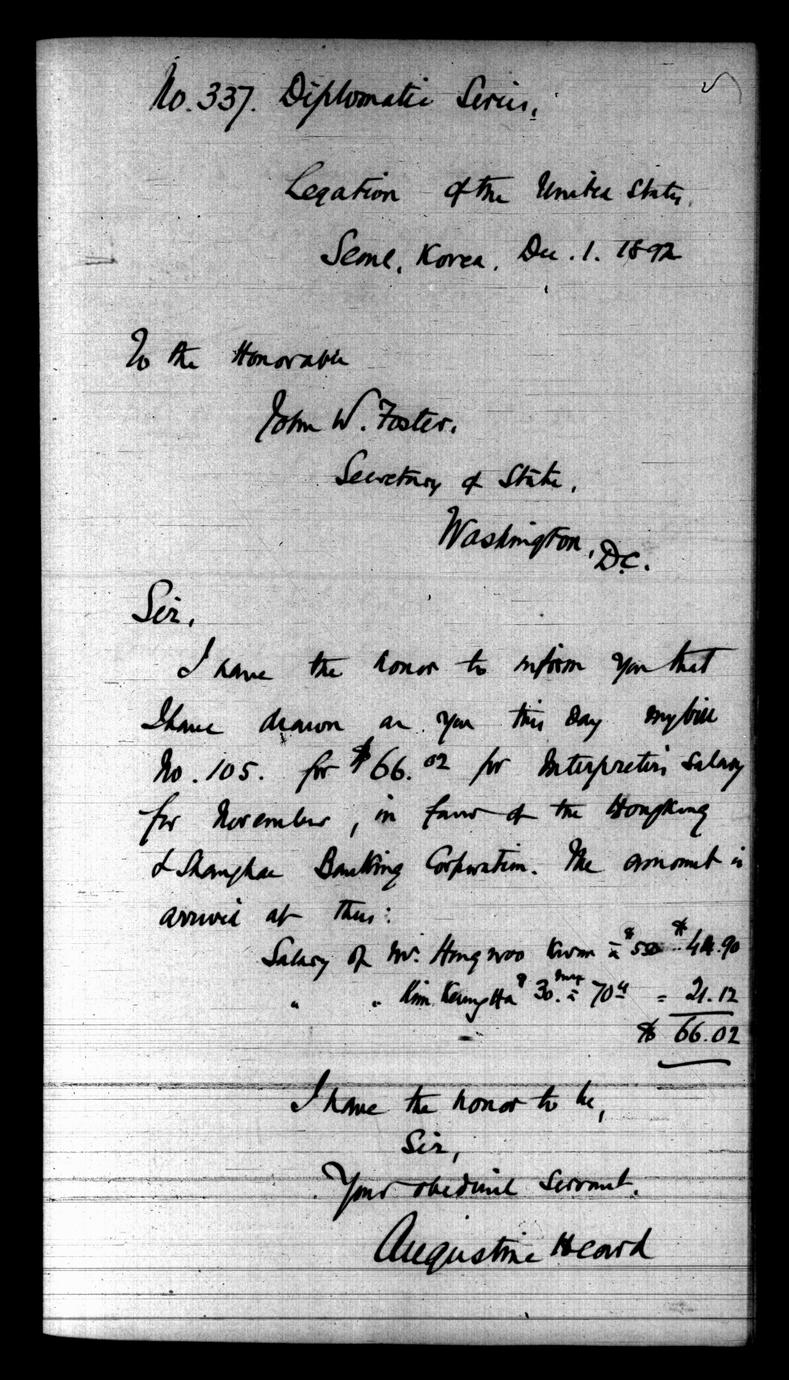 No. 337. Diplomatic Series.
Legation of the United States.
Seoul, Korea. Dec. 1. 1892
To the Honorable
John W. Foster.
Secretary of State,
Washington, D.C.
Sir,
I have the honor to inform you that
I have drawn on you this day my bill
No. 105. for $66.02 for Interpreter's salary
for November, in favor of the Hongkong
& Shanghae Banking Corporation. The amount is
arrived at thus:
Salary of Mr. Hongwoo Kwon $50 $44.90
" " Kim $30. Mex 70 = 21.12
$ 66.02
I have the honor to be,
Sir,
Your obedient servant.
Augustine Heard